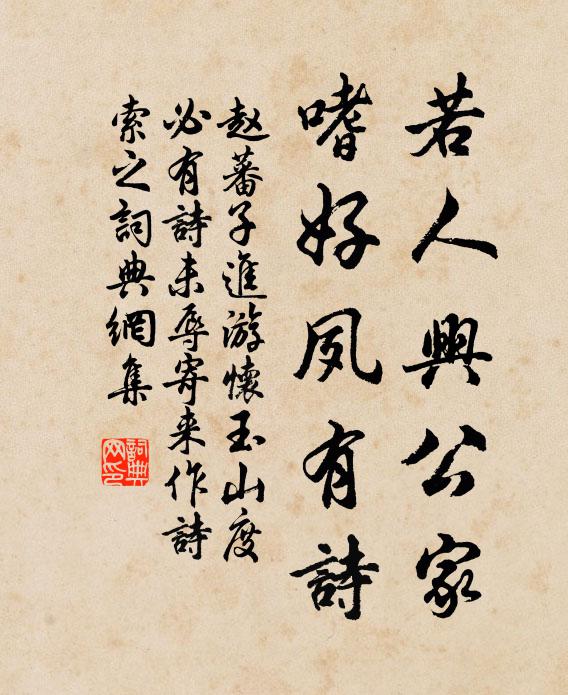 若人興公家
嗜好夙有詩
赵蕃子進游懷玉山度
必有詩未辱寄来作詩
索之詞典網集
詞典网印